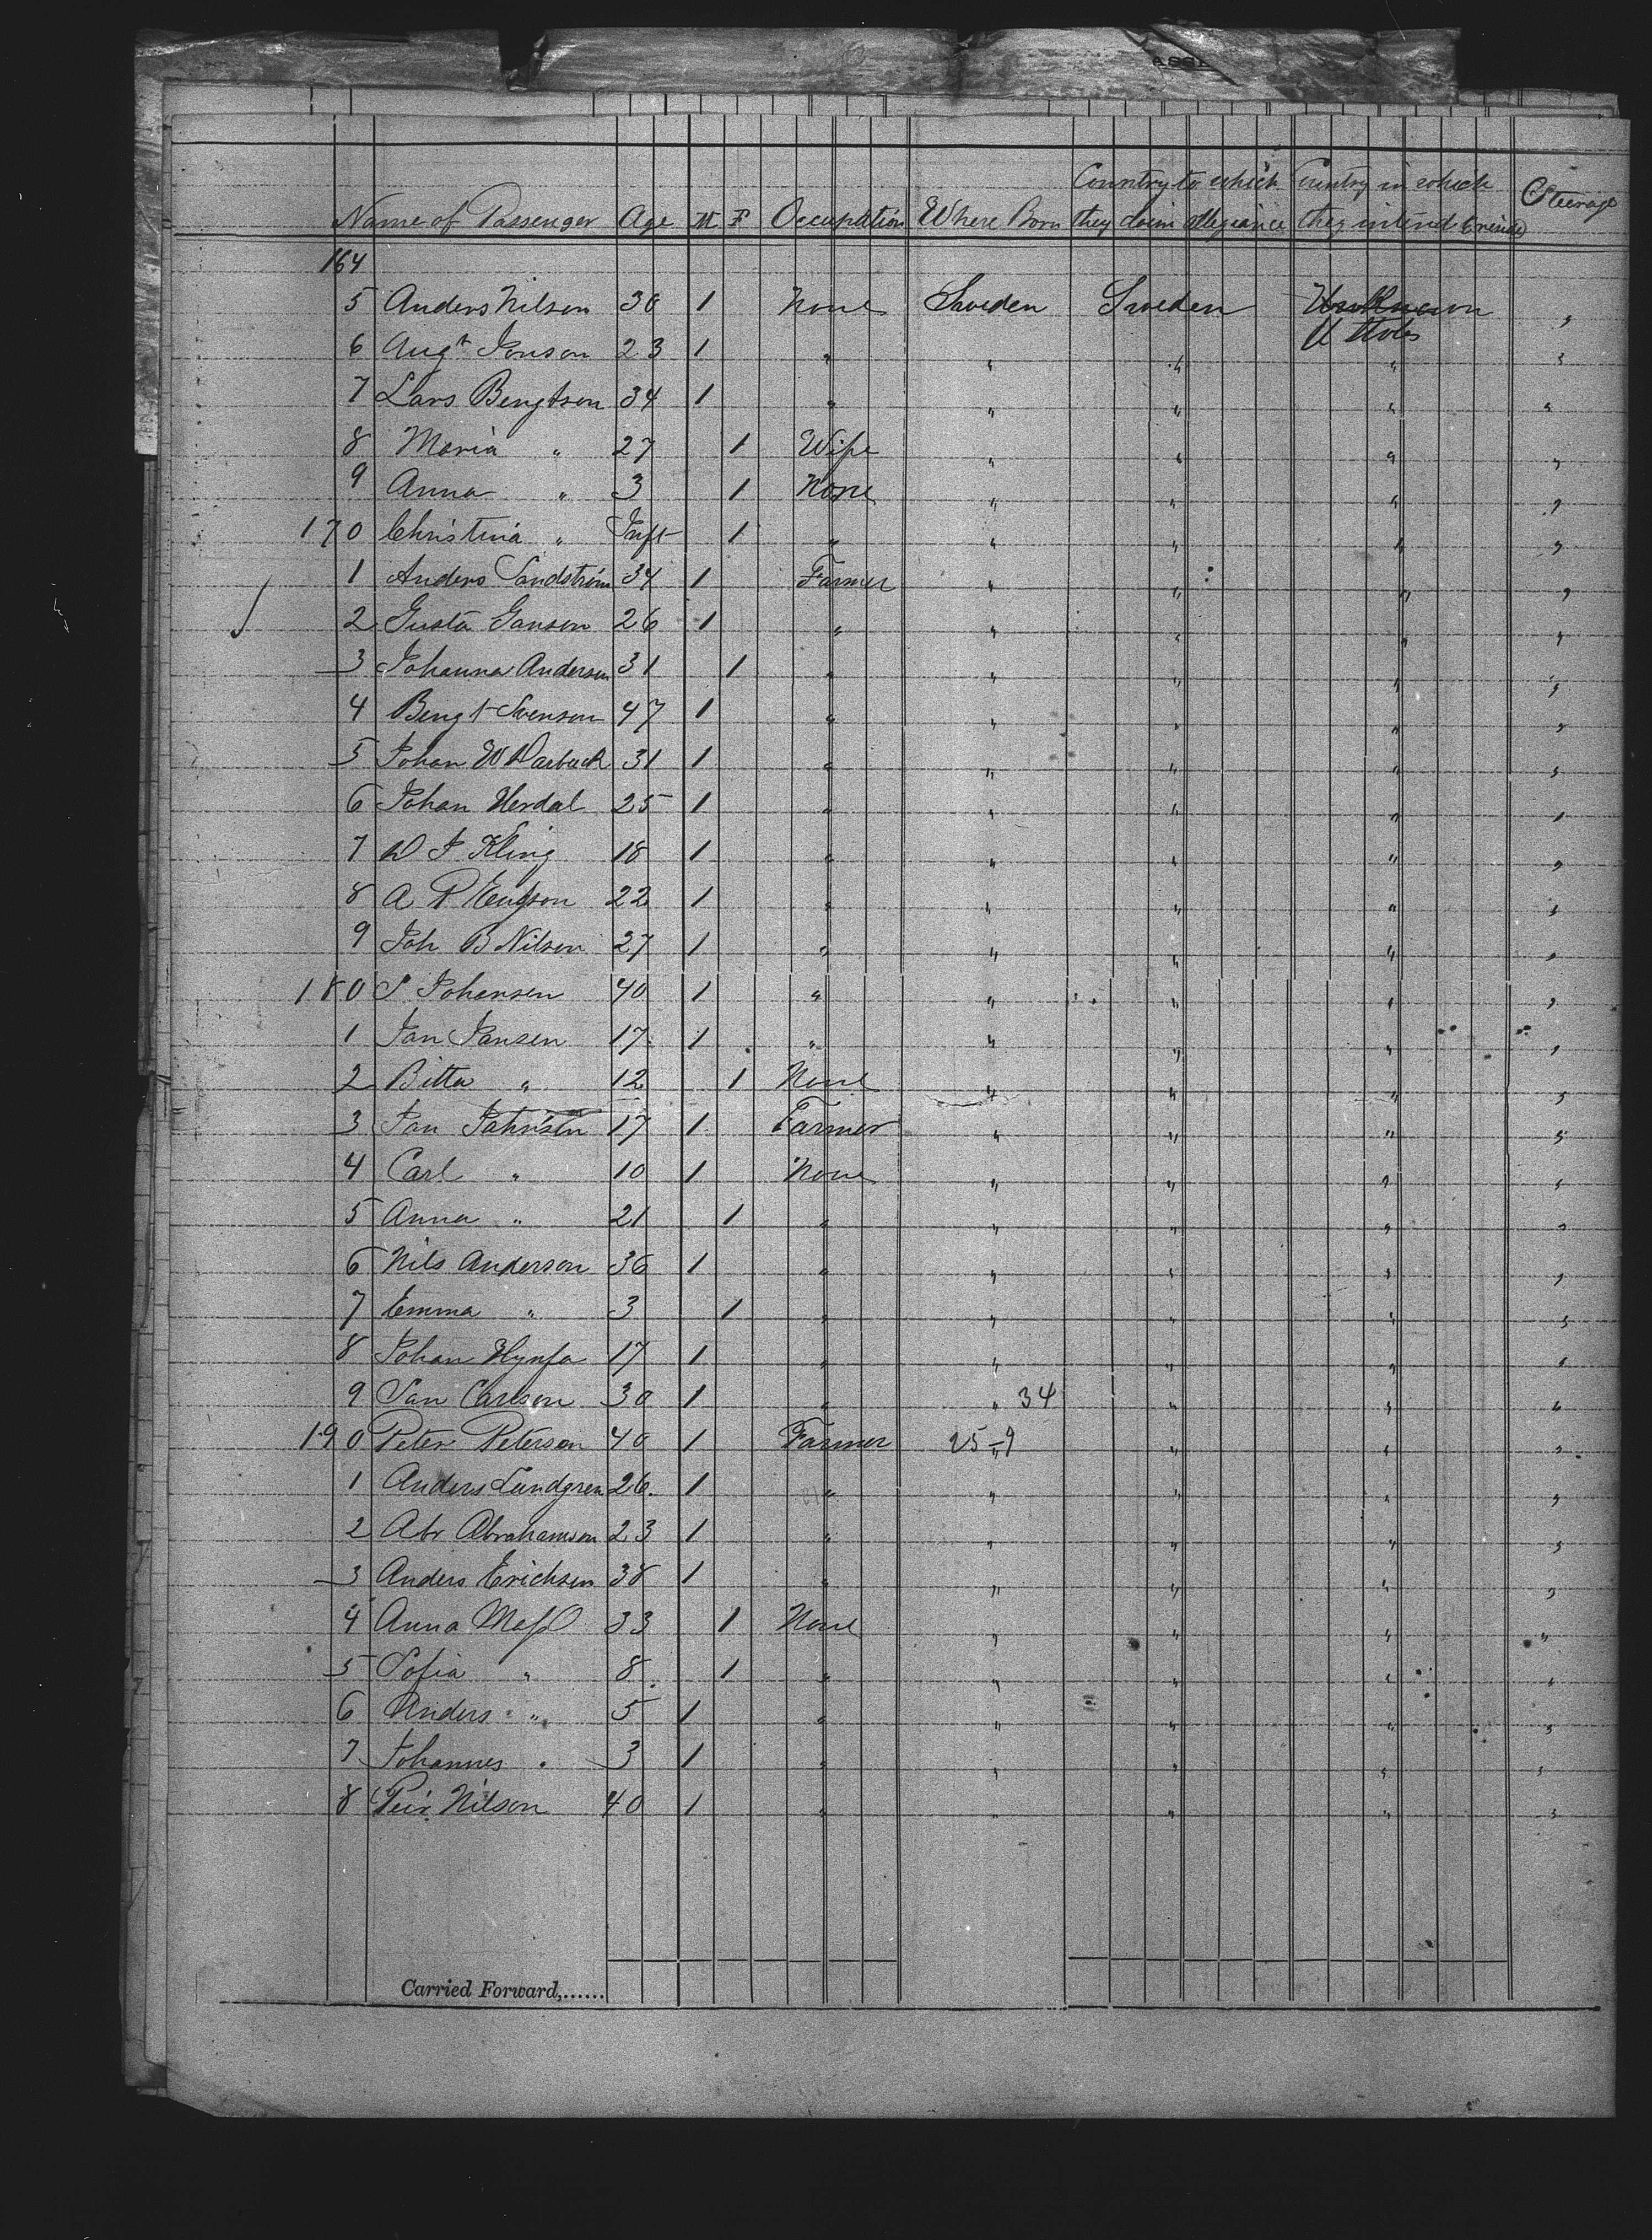 Name of Passenger Age M F Occupation Where Born Country to which they claim allegiance Country in which they intend to reside Steerage
164
5 Anders Nilson 30 1 None Sweden Sweden Unknown "
U States
6 Augt Jonson 23 1 " " " " "
7 Lars Bengtson 34 1 " " " " "
8 Maria " 27 1 Wife " " " "
9 Anna " 3 1 None " " " "
170 Christina " Inft 1 " " " " "
1 Anders Sandström 34 1 Farmer " " " "
2 Gusta Janson 26 1 " " " " "
3 Johanna Anderson 31 1 " " " " "
4 Bengt Svenson 47 1 " " " " "
5 Johan W 31 1 " " " " "
6 Johan Herdal 25 1 " " " " "
7 Kling 18 1 " " " " "
8 A P 22 1 " " " " "
9 Joh B Nilson 27 1 " " " " "
180 Johansen 40 1 " " " " "
1 Jan Jansen 17 1 " " " " "
2 Bitta " 12 1 None " " " "
3 Jan 17 1 Farmer " " " "
4 Carl " 10 1 None " " " "
5 Anna " 21 1 " " " " "
6 Nils Anderson 36 1 " " " " "
7 Emma " 3 1 " " " " "
8 Johan 17 1 " " " " "
9 Jan Carlson 30 1 " " 34 " " "
190 Peter Peterson 40 1 Farmer 25-9 " " " "
1 Anders Lundgren 26 1 " " " " "
2 Abr Abrahamson 23 1 " " " " "
3 Anders Erichsen 38 1 " " " " "
4 Anna 33 1 None " " " "
5 Sofia " 8 1 " " " " "
6 Anders " 5 1 " " " " "
7 Johannes " 3 1 " " " " "
8 Nilson 40 1 " " " " "
Carried Forward,......